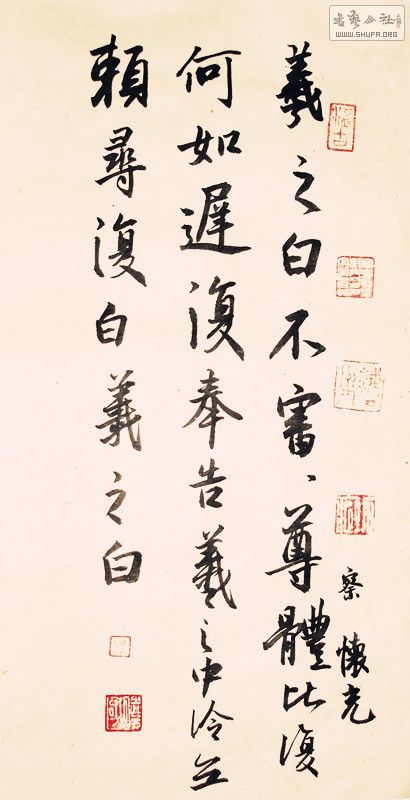 書藝公社
WWW.SHUFA.ORG
察 懷充
羲之白不審、尊體比復
何如遲復奉告羲之中冷無
賴尋復白羲之白